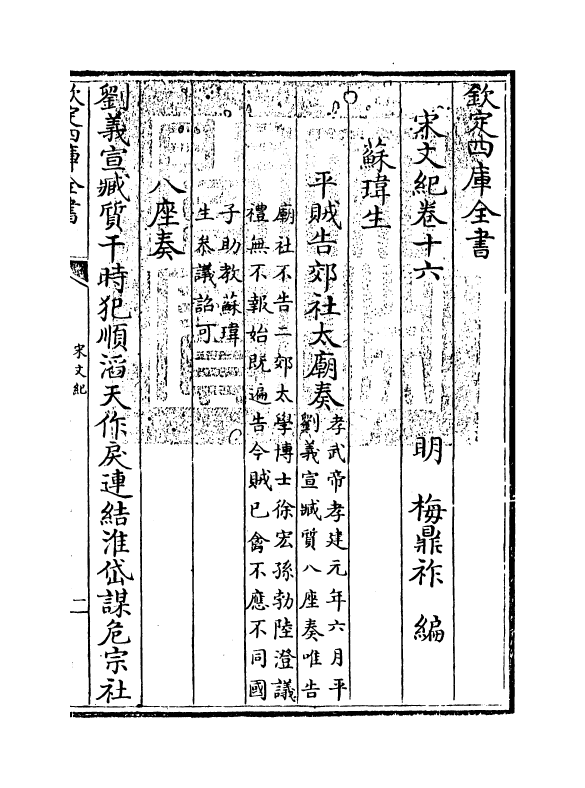 欽定四庫全書
宋文紀卷十六
明 梅鼎祚 編
蘇瑋生
平賊告郊社太廟奏
孝武帝孝建元年六月平
劉義宣臧質八座奏唯告
廟社不告二郊太學博士徐宏孫勃陸澄議
禮無不報始既遍告今賊已禽不應不同國
子助教蘇瑋
生叅議詔可
八座奏
劉義宣臧質干時犯順滔天作戾連結淮岱謀危宗社
欽定四庫全書
宋文紀
二